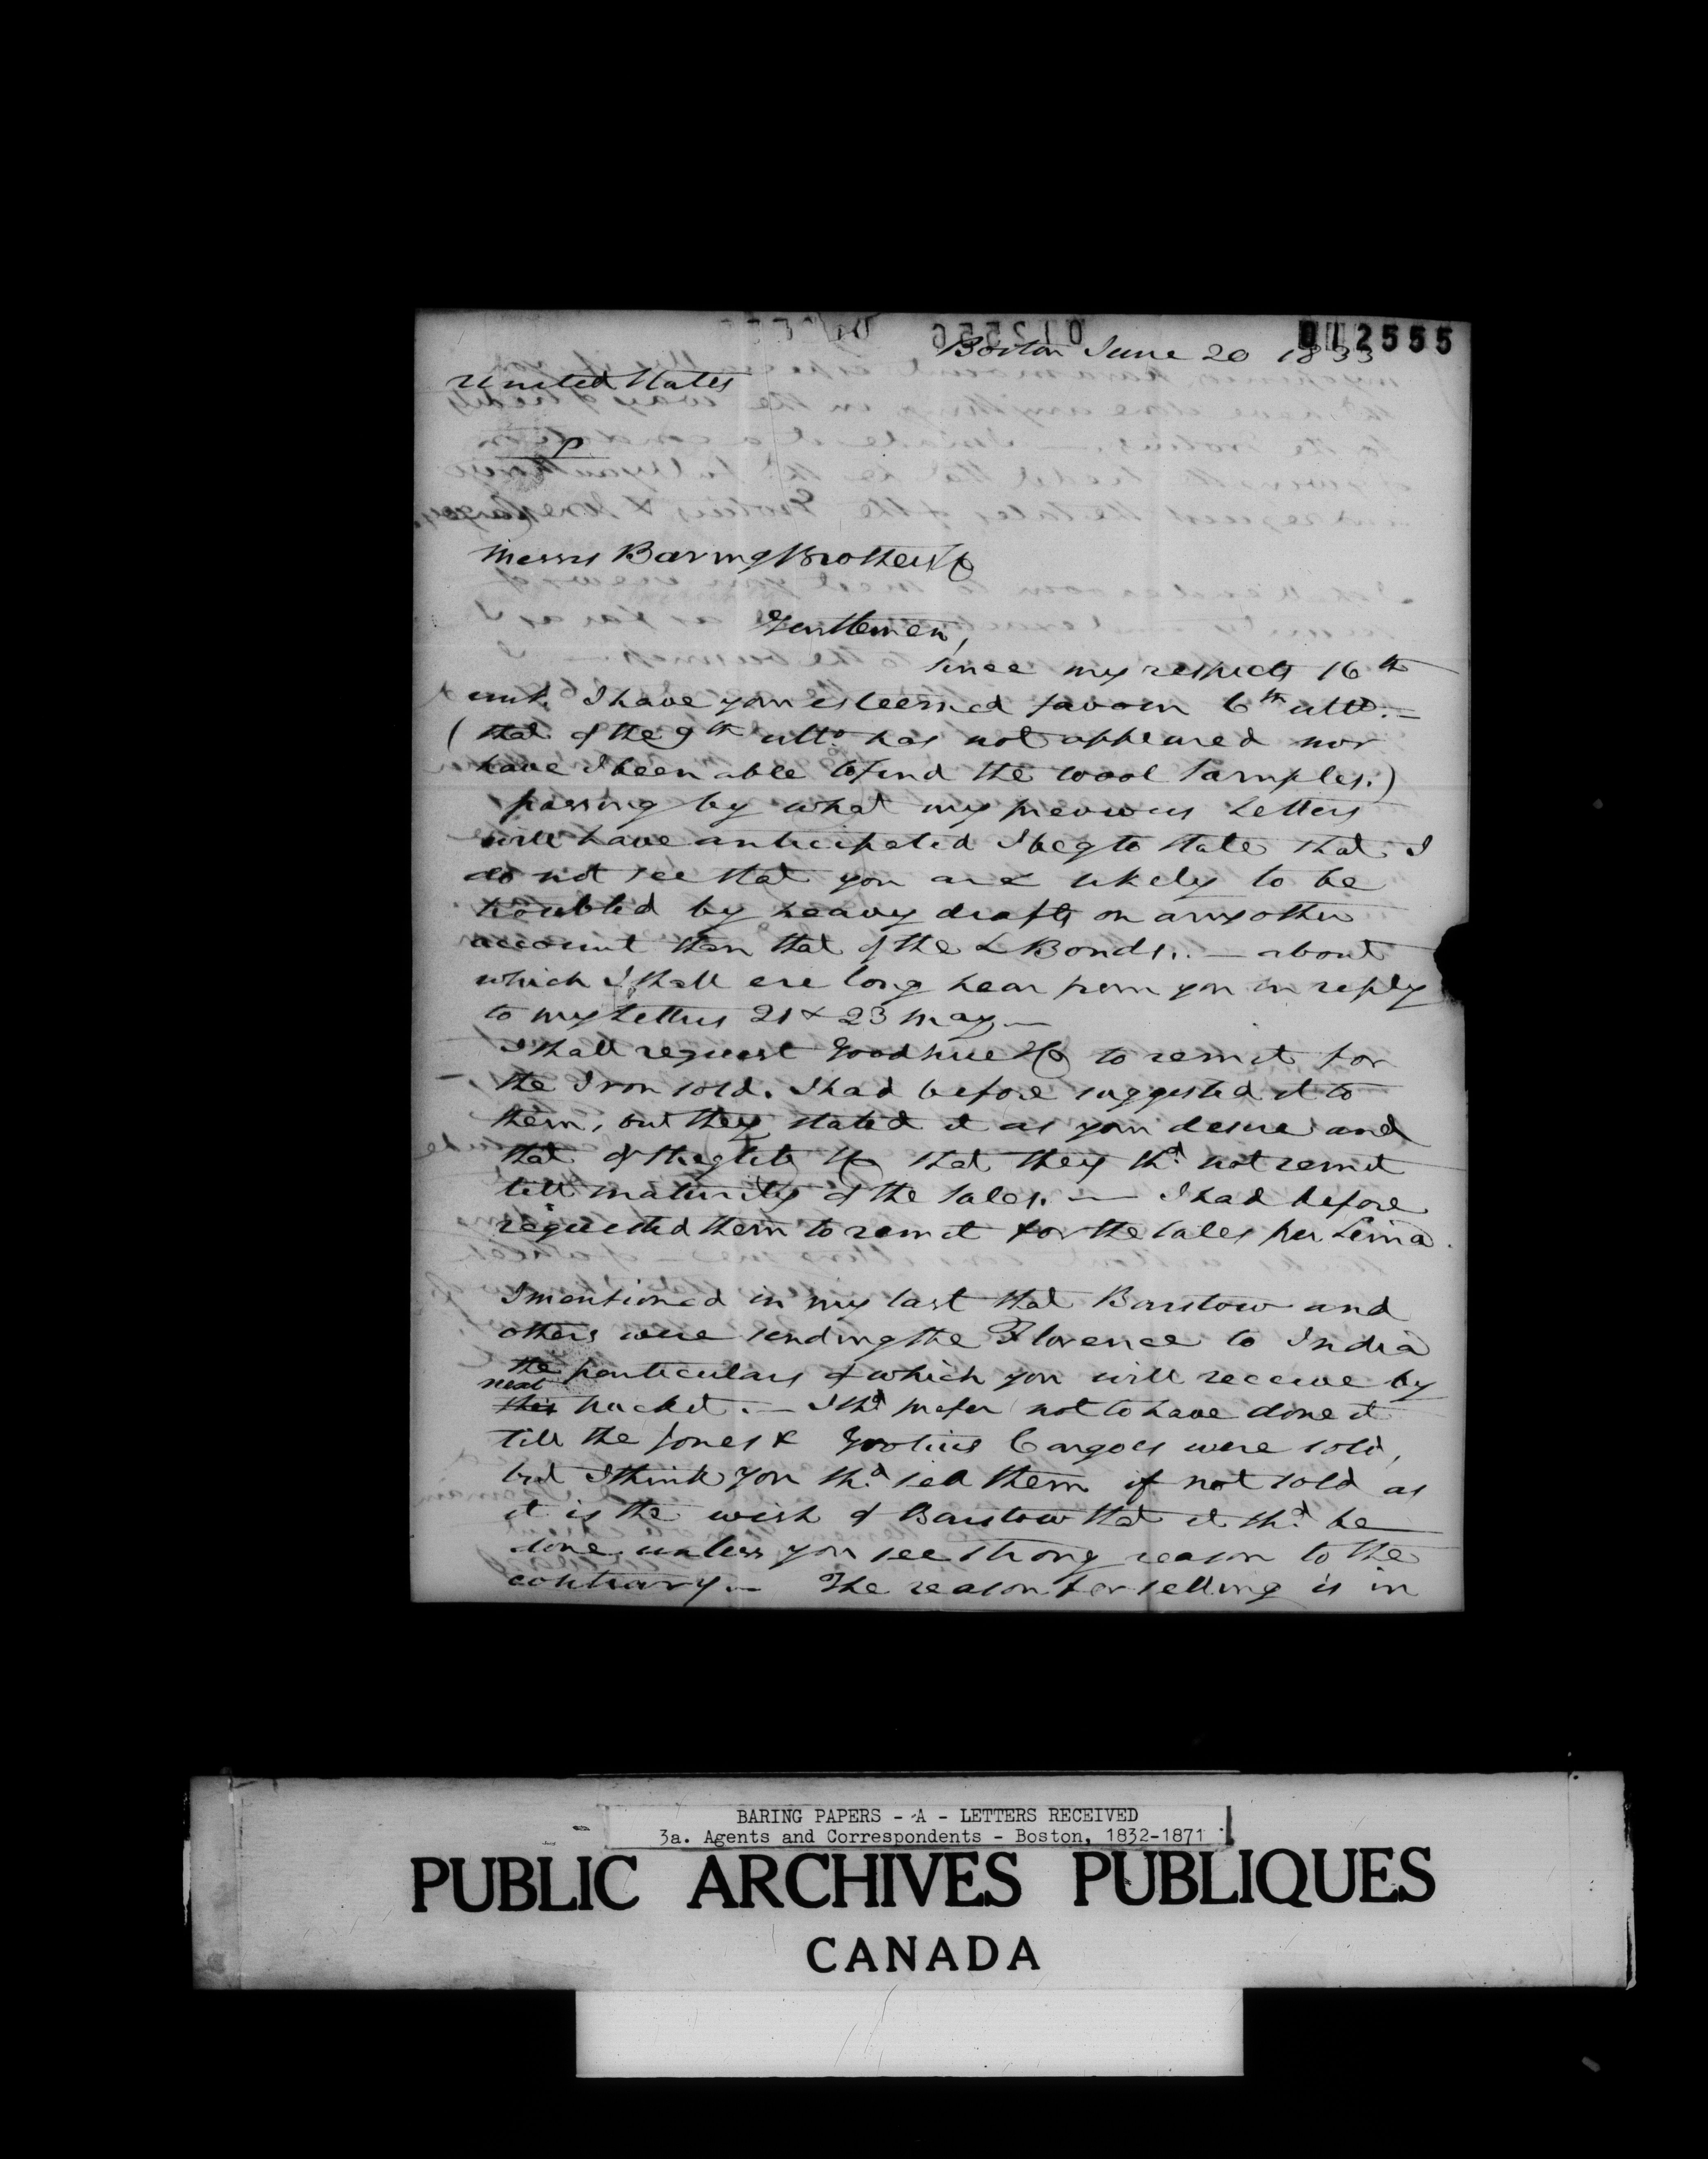 012555
Boston June 20 1833
United States
P
Messrs Baring Brothers & Co
Gentlemen,
Since my respects 16th
inst. I have your esteemed favour 6th ulto. —
(that of the 9th ulto. has not appeared nor
have I been able to find the wool samples.)
passing by what my previous Letters
will have anticipated I beg to state that I
do not see that you are likely to be
troubled by heavy drafts on any other
account than that of the L Bonds. — about
which I shall ere long hear from you in reply
to my Letters 21 & 23 May —
I shall request Goodhue & Co to remit for
the Iron sold. I had before suggested it to
them, but they stated it as your desire and
that of & Co that they shd. not remit
till maturity of the sales. — I had before
requested them to remit for the sales per Lima.
I mentioned in my last that Barstow and
others were sending the Florence to India
the particulars of which you will receive by
next
this packet. — I shd prefer not to have done it
till the Jones & Grotius Cargoes were sold,
but I think you shd. sell them if not sold as
it is the wish of Barstow that it shd. be
done unless you see strong reason to the
contrary. — The reason for selling is in
BARING PAPERS - A - LETTERS RECEIVED
3a. Agents and Correspondents - Boston, 1832-1871
PUBLIC ARCHIVES PUBLIQUES
CANADA